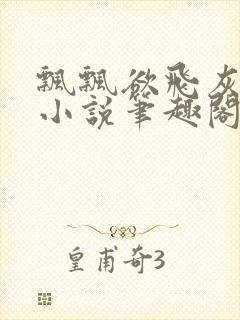 飄飄欲飛灰
小説筆趣閣
皇甫奇3